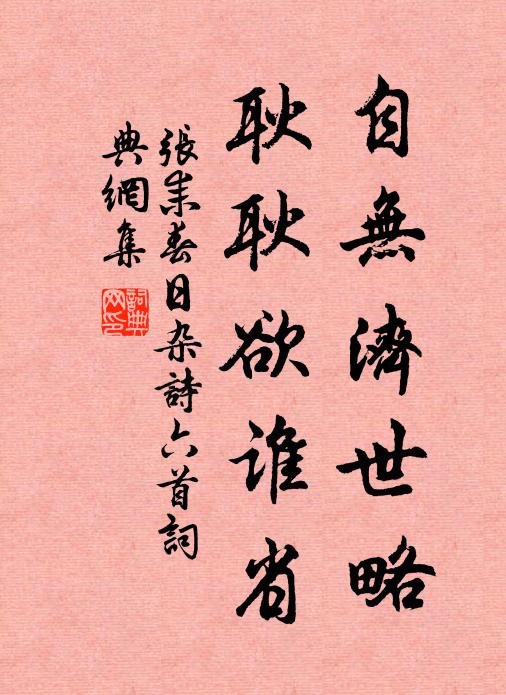 自無濟世略
耿耿欲誰省
張耒春日杂詩六首詞
典網集
詞典
网印